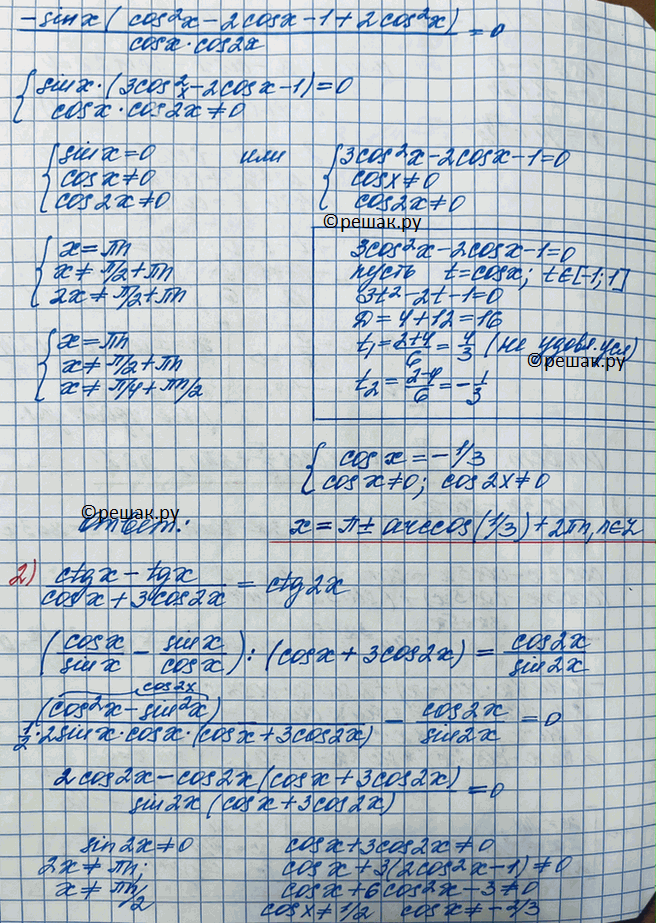 -sinx( cos²x-2cosx-1+2cos²x) / cosx·cos2x = 0
{ sinx·(3cos²x-2cosx-1)=0
cosx·cos2x≠0
{ sinx=0 или { 3cos²x-2cosx-1=0
cosx≠0 cosx≠0
cos2x≠0 cos2x≠0
©решак.ру
{ x=πn
x≠π/2+πn
2x≠π/2+πn
{ x=πn
x≠π/2+πn
x≠π/4+πn/2
3cos²x-2cosx-1=0
пусть t=cosx; t∈[-1;1]
3t²-2t-1=0
D=4+12=16
t₁=2+4/6=4/3 (не удовл. усл)
©решак.ру
t₂=2-4/6=-1/3
{ cosx=-1/3
cosx≠0; cos2x≠0
©решак.ру
Ответ: x=π±arccos(1/3)+2πn, n∈Z
2) ctgx-tgx / cosx+3cos2x = ctg2x
(cosx/sinx - sinx/cosx):(cosx+3cos2x)=cos2x/sin2x
cos2x
(cos²x-sin²x) / 1/2·2sinx·cosx·(cosx+3cos2x) - cos2x/sin2x=0
2cos2x-cos2x(cosx+3cos2x) / sin2x(cosx+3cos2x) =0
sin2x≠0 cosx+3cos2x≠0
2x≠πn; cosx+3(2cos²x-1)≠0
x≠πn/2 cosx+6cos2x-3≠0
cosx≠1/2 cosx≠-2/3